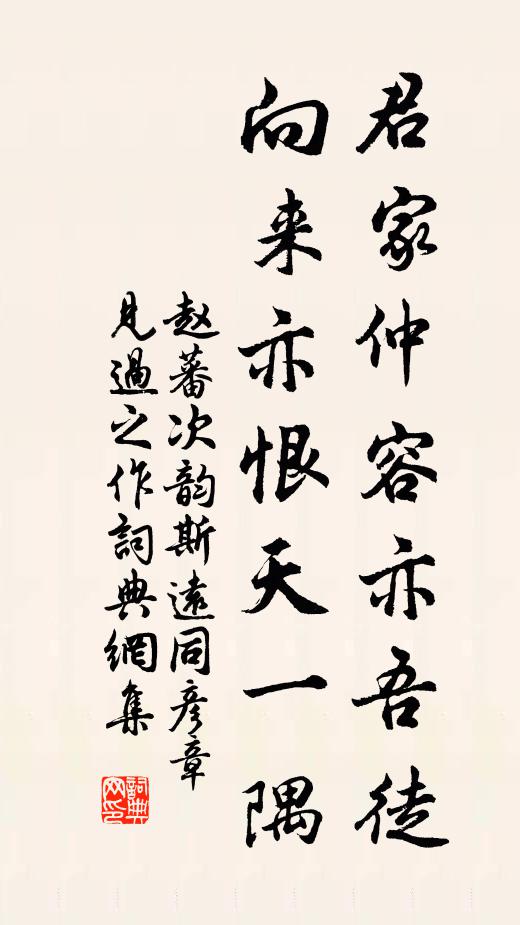 君家仲容亦吾徒
向来亦恨天一隅
赵蕃次韵斯远同彦章
见過之作詞典網集
詞典网印